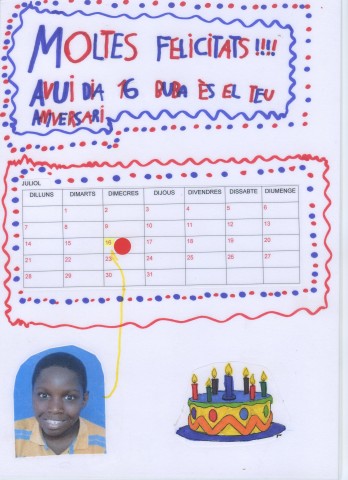 MOLTES FELICITATS !!!!
AVUI DIA 16 DUBA ÈS EL TEU
ANIVERSARI
JULIOL
DILLUNS DIMARTS DIMECRES DIJOUS DIVENDRES DISSABTE DIUMENGE
1 2 3 4 5 6
7 8 9 10 11 12 13
14 15 16 17 18 19 20
21 22 23 24 25 26 27
28 29 30 31